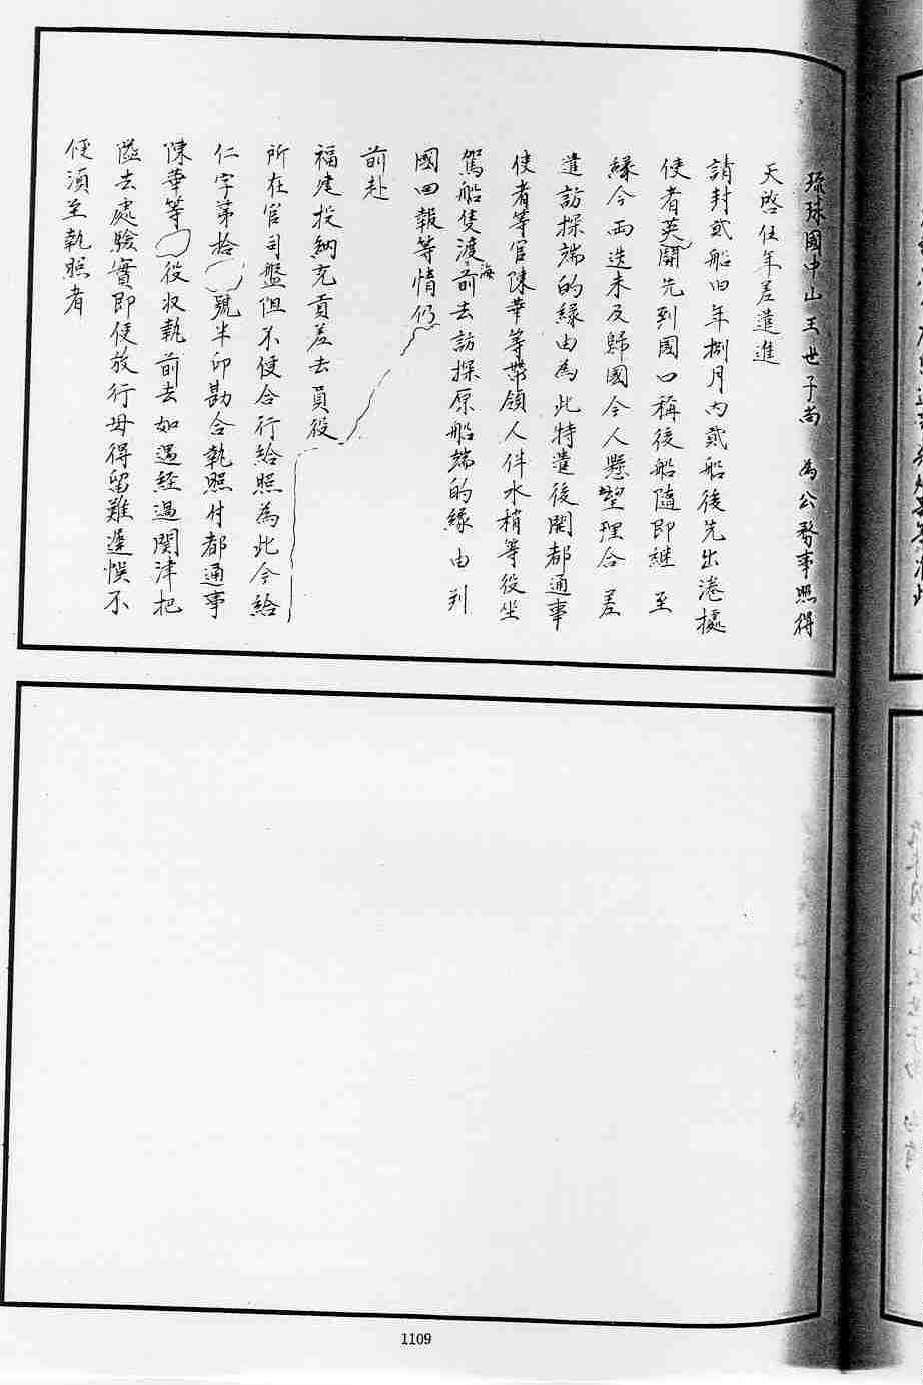 琉球國中山王世子尚 為公務事照得
天啓任年差遣進
請封貳船旧年捌月內貳船後先出港據
使者英開先到國口稱後船隨即継至
緣今両迭未及歸國令人懸望理合差
遣訪探端的緣由為此特遣後開都通事
使者等官陳華等帶領人伴水稍等役坐
駕船隻渡海前去訪探原船端的緣由到
國回報等情仍
前赴
福建投納充貢差去員役
所在官司盤阻不便合行給照為此今給
仁字第拾 號半印勘合執照付都通事
陳華等 役收執前去如遇経過関津把
隘去處驗實即便放行毋得留難遲悞不
便須至執照者
1109